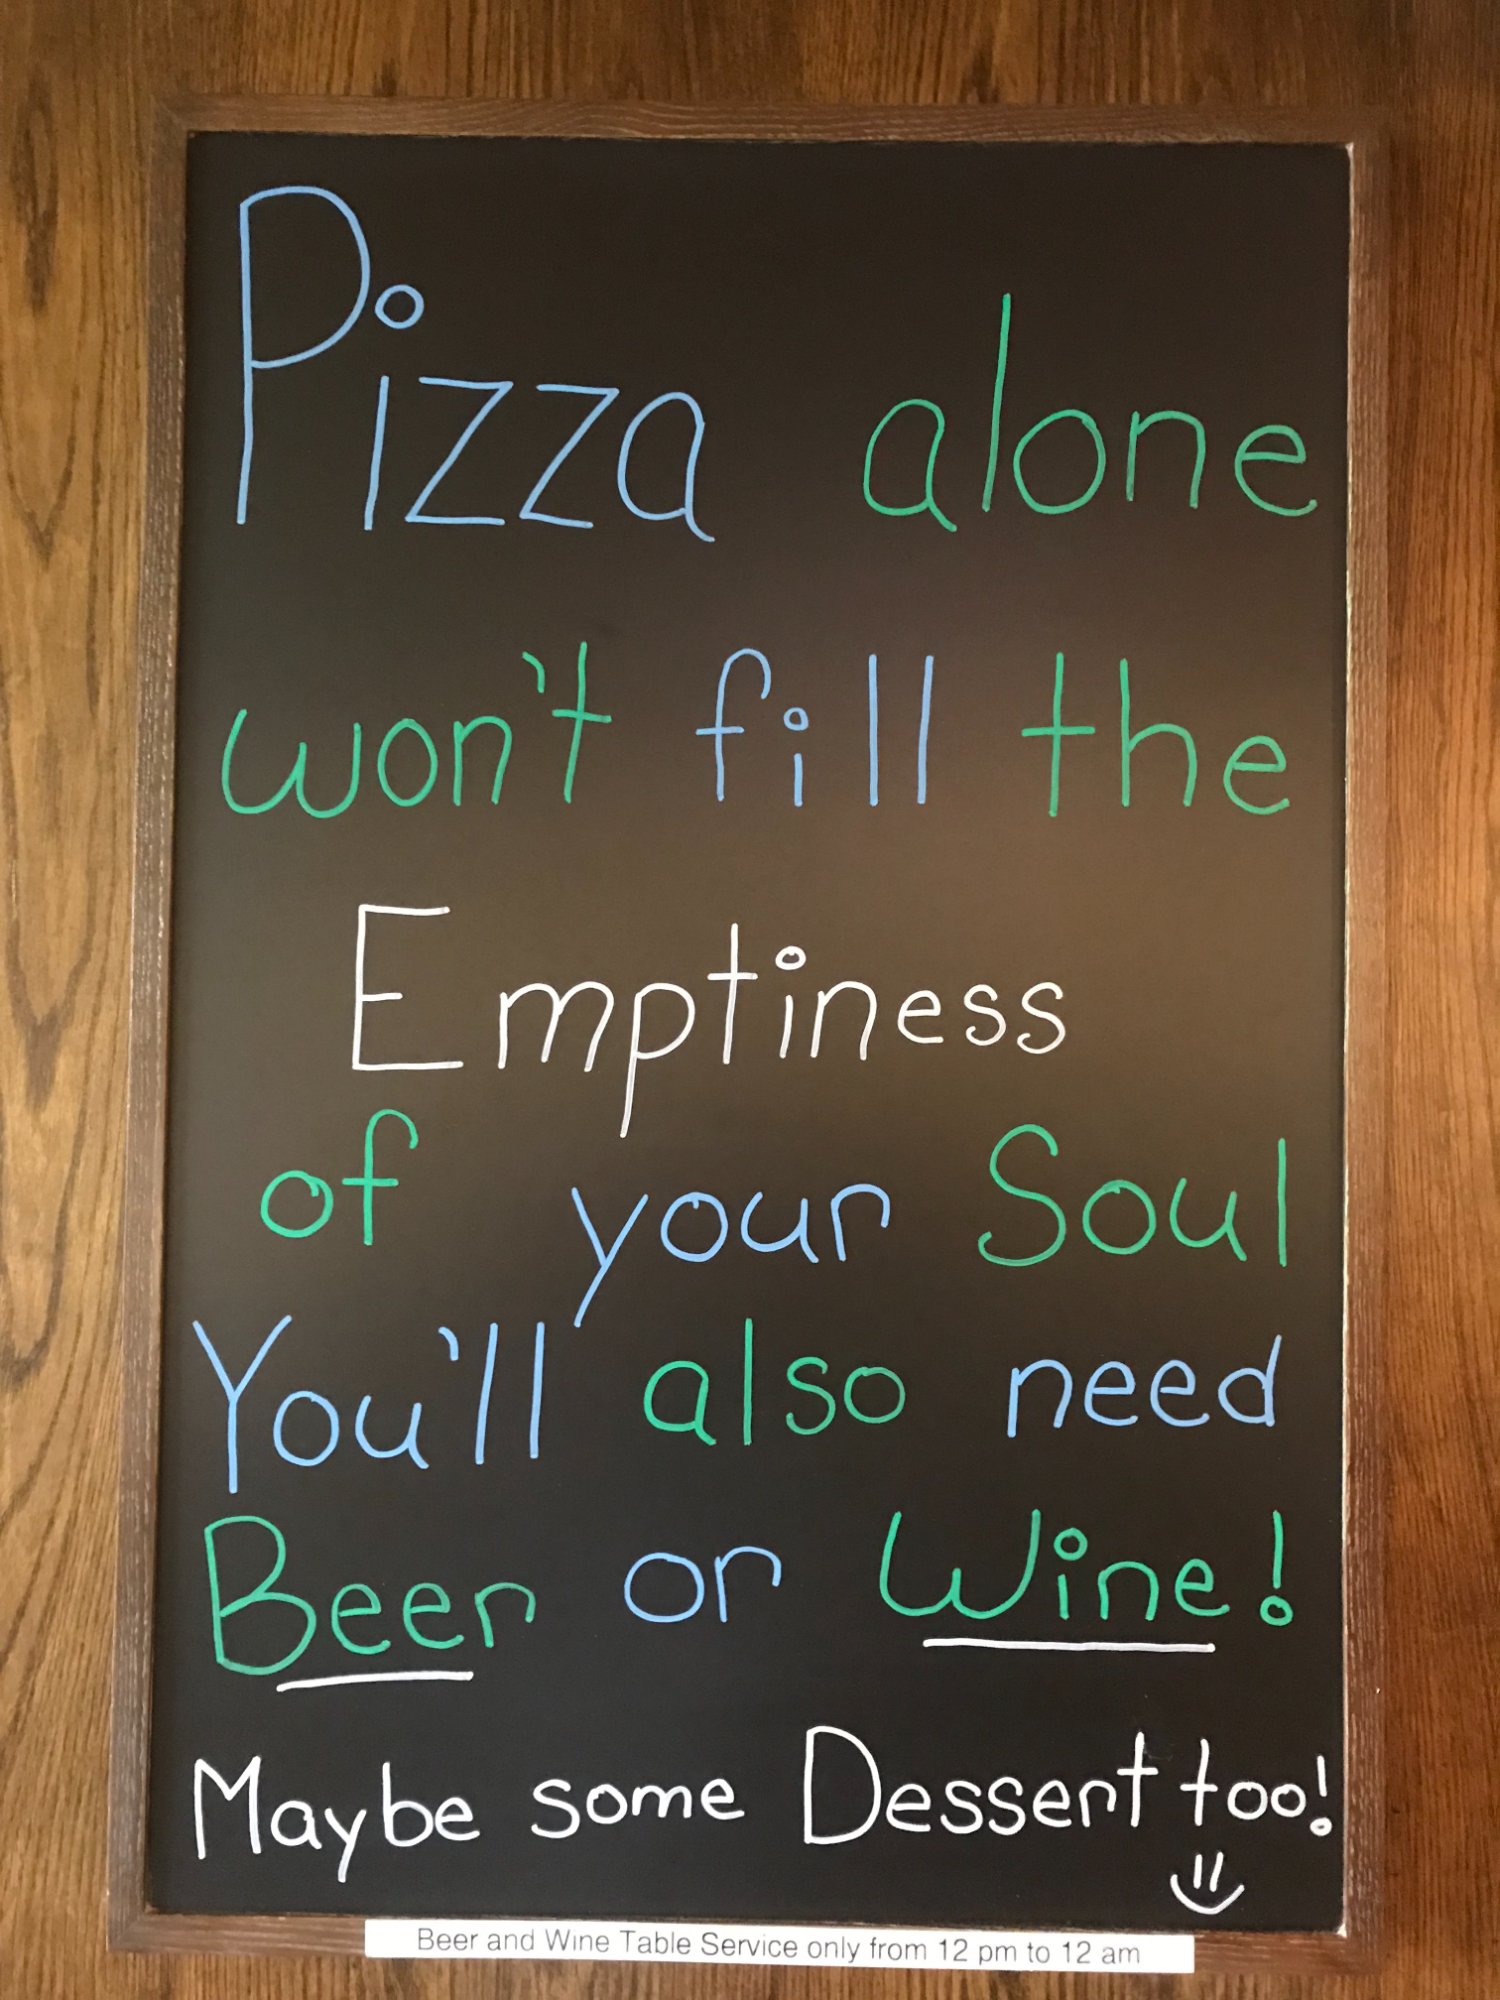 Pizza alone
won't fill the
Emptiness
of your Soul
You'll also need
Beer or Wine!
Maybe some Dessert too!
Beer and Wine Table Service only from 12 pm to 12 am